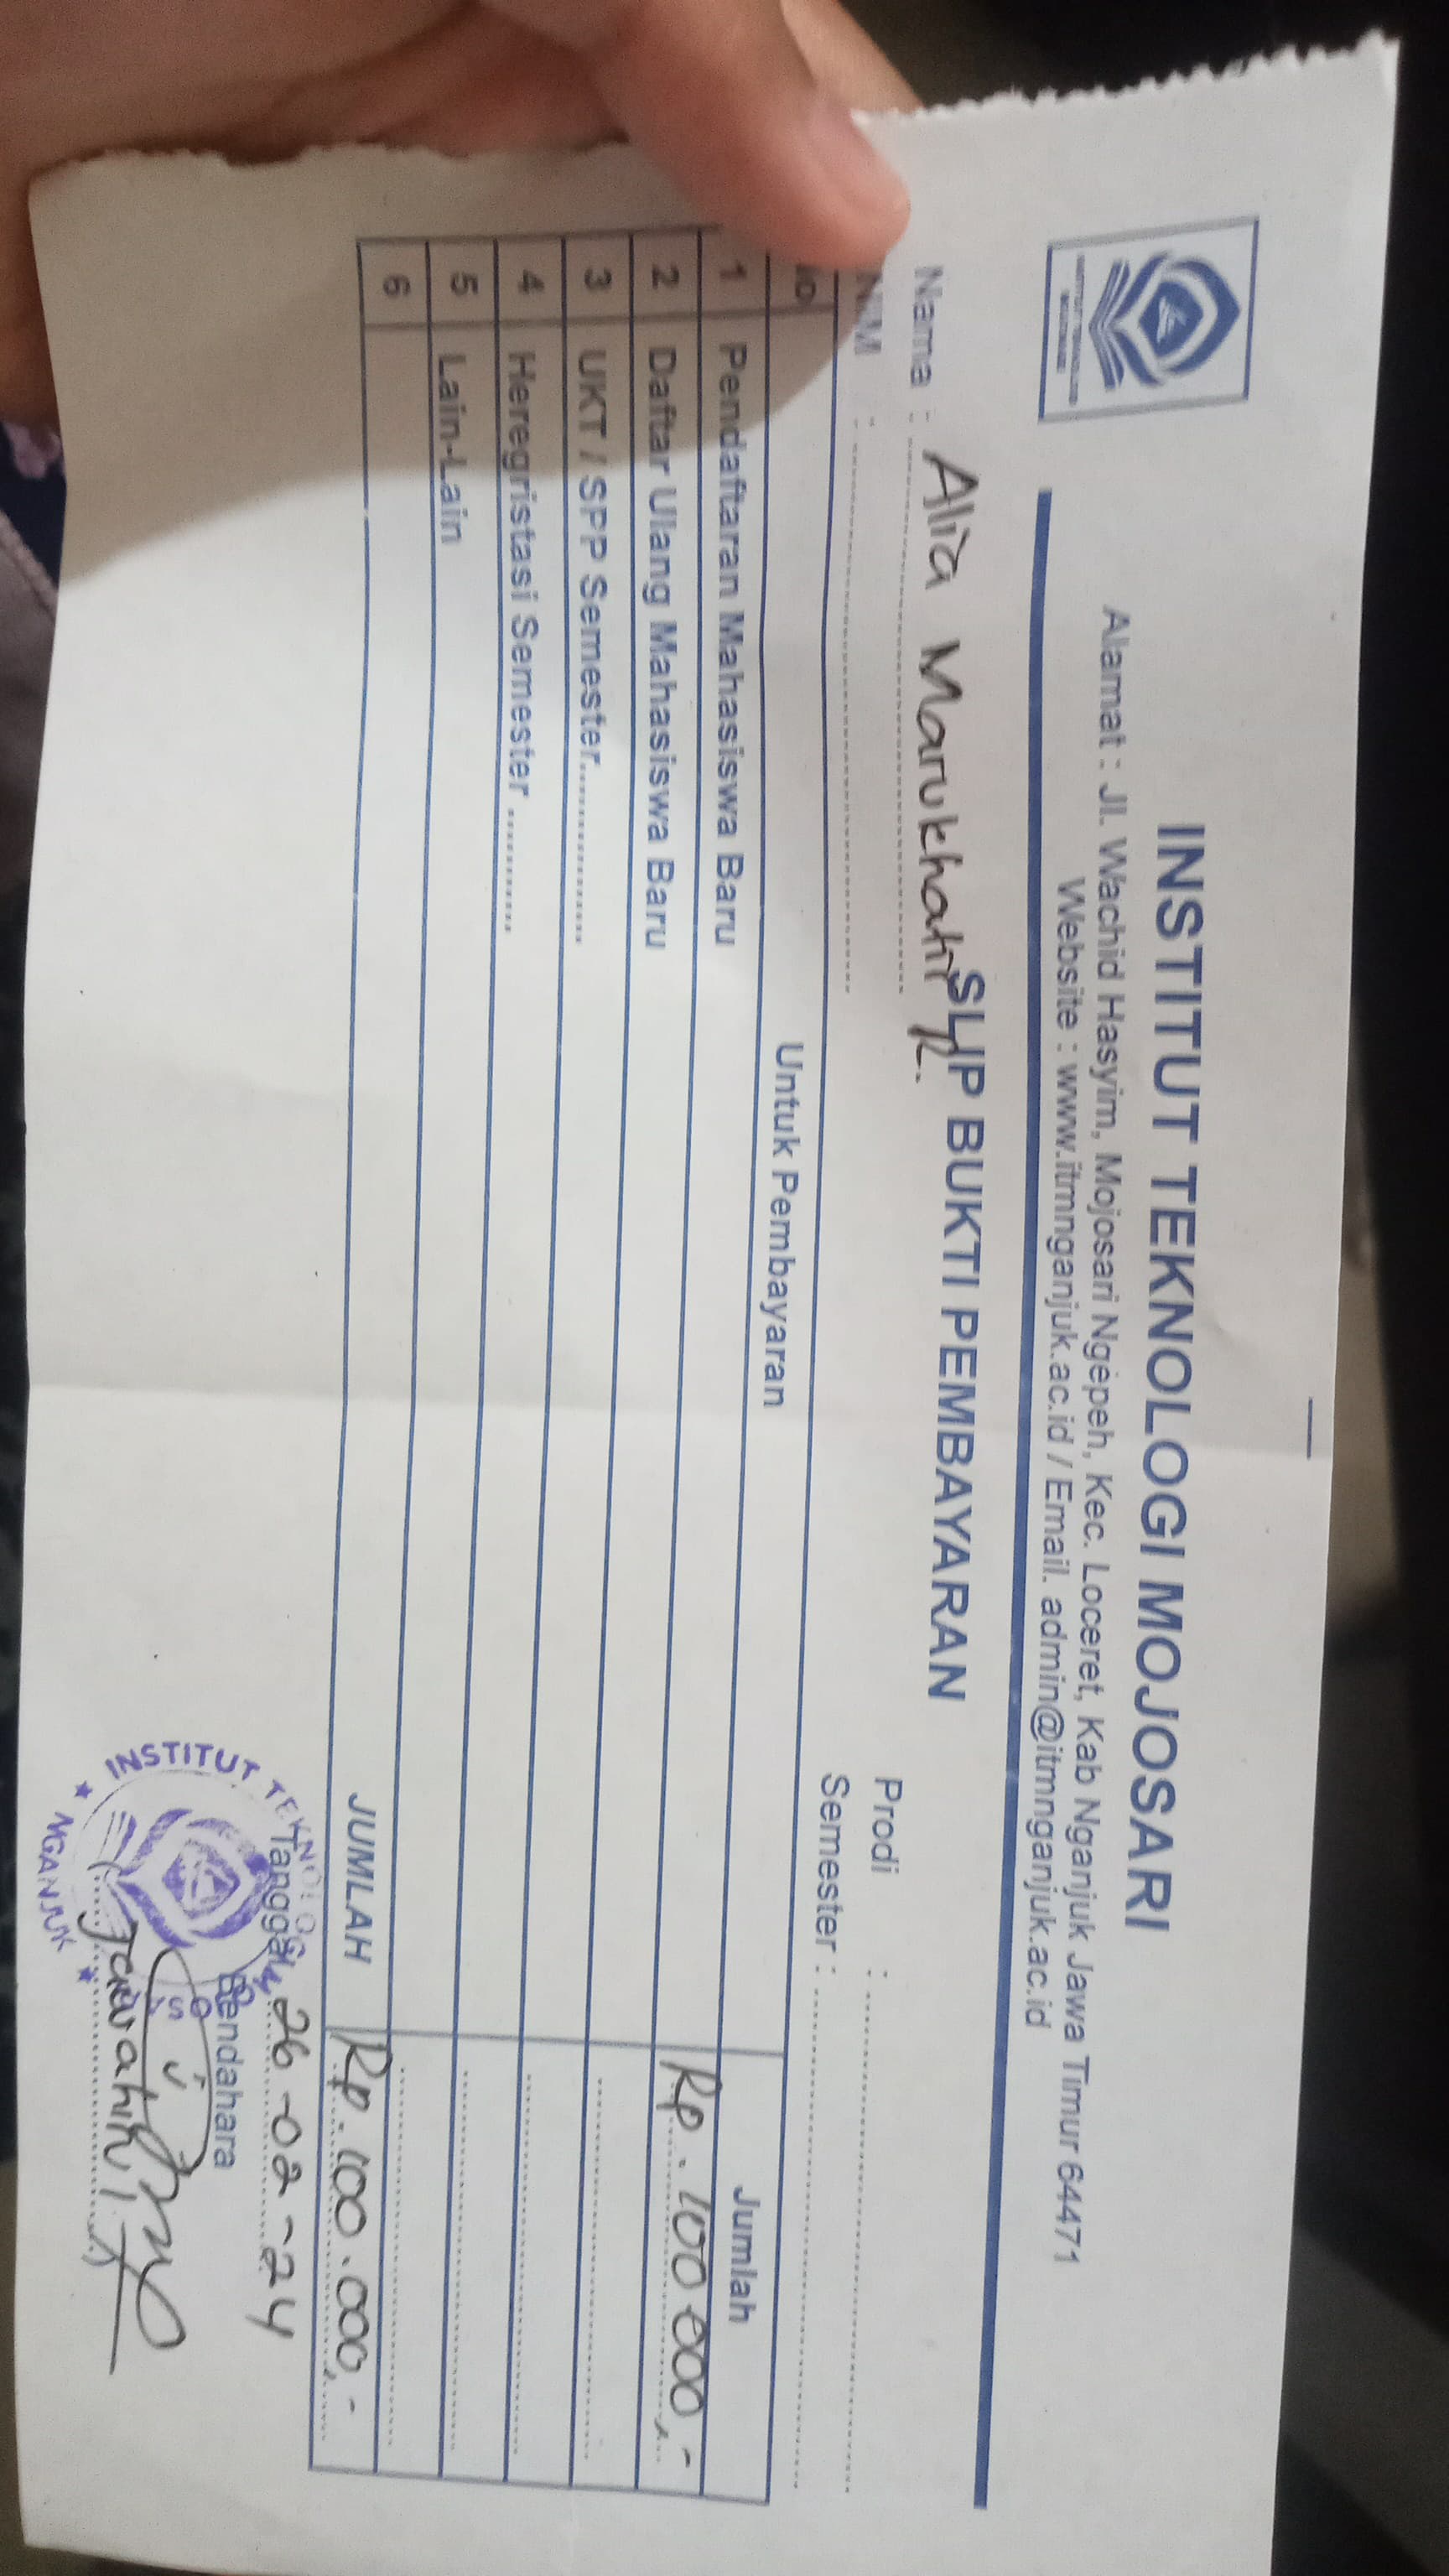 INSTITUT TEKNOLOGI MOJOSARI
Alamat : Jl. Wachid Hasyim, Mojosari Ngepeh, Kec. Loceret, Kab Nganjuk Jawa Timur 64471
Website : www.itmnganjuk.ac.id / Email. admin@itmnganjuk.ac.id
SLIP BUKTI PEMBAYARAN
Nama : Alia Marukhatir R.
Prodi :
NIM :
Semester :
No Untuk Pembayaran Jumlah
1 Pendaftaran Mahasiswa Baru Rp. 100.000,-
2 Daftar Ulang Mahasiswa Baru
3 UKT / SPP Semester.............
4 Heregristasi Semester ..........
5 Lain-Lain
6
JUMLAH Rp. 100.000,-
Tanggal, 26-02-24
Bendahara
INSTITUT TEKNOLOGI
NGANJUK